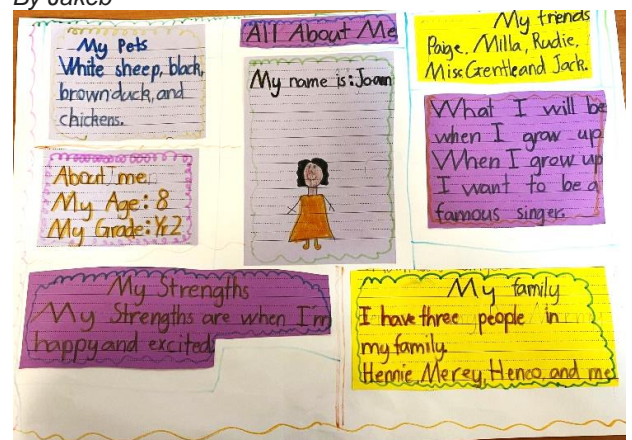 By Jakeb
My Pets
White sheep, black,
brown duck, and
chickens.
All About Me
My name is: Joann
My friends
Paige, Milla, Rudie,
Miss Gentle and Jack.
About me
My Age: 8
My Grade: Yr2
What I will be
when I grow up
When I grow up
I want to be a
famous singer.
My Strengths
My Strengths are when I'm
happy and excited
My family
I have three people in
my family.
Hennie, Merey, Henco, and me